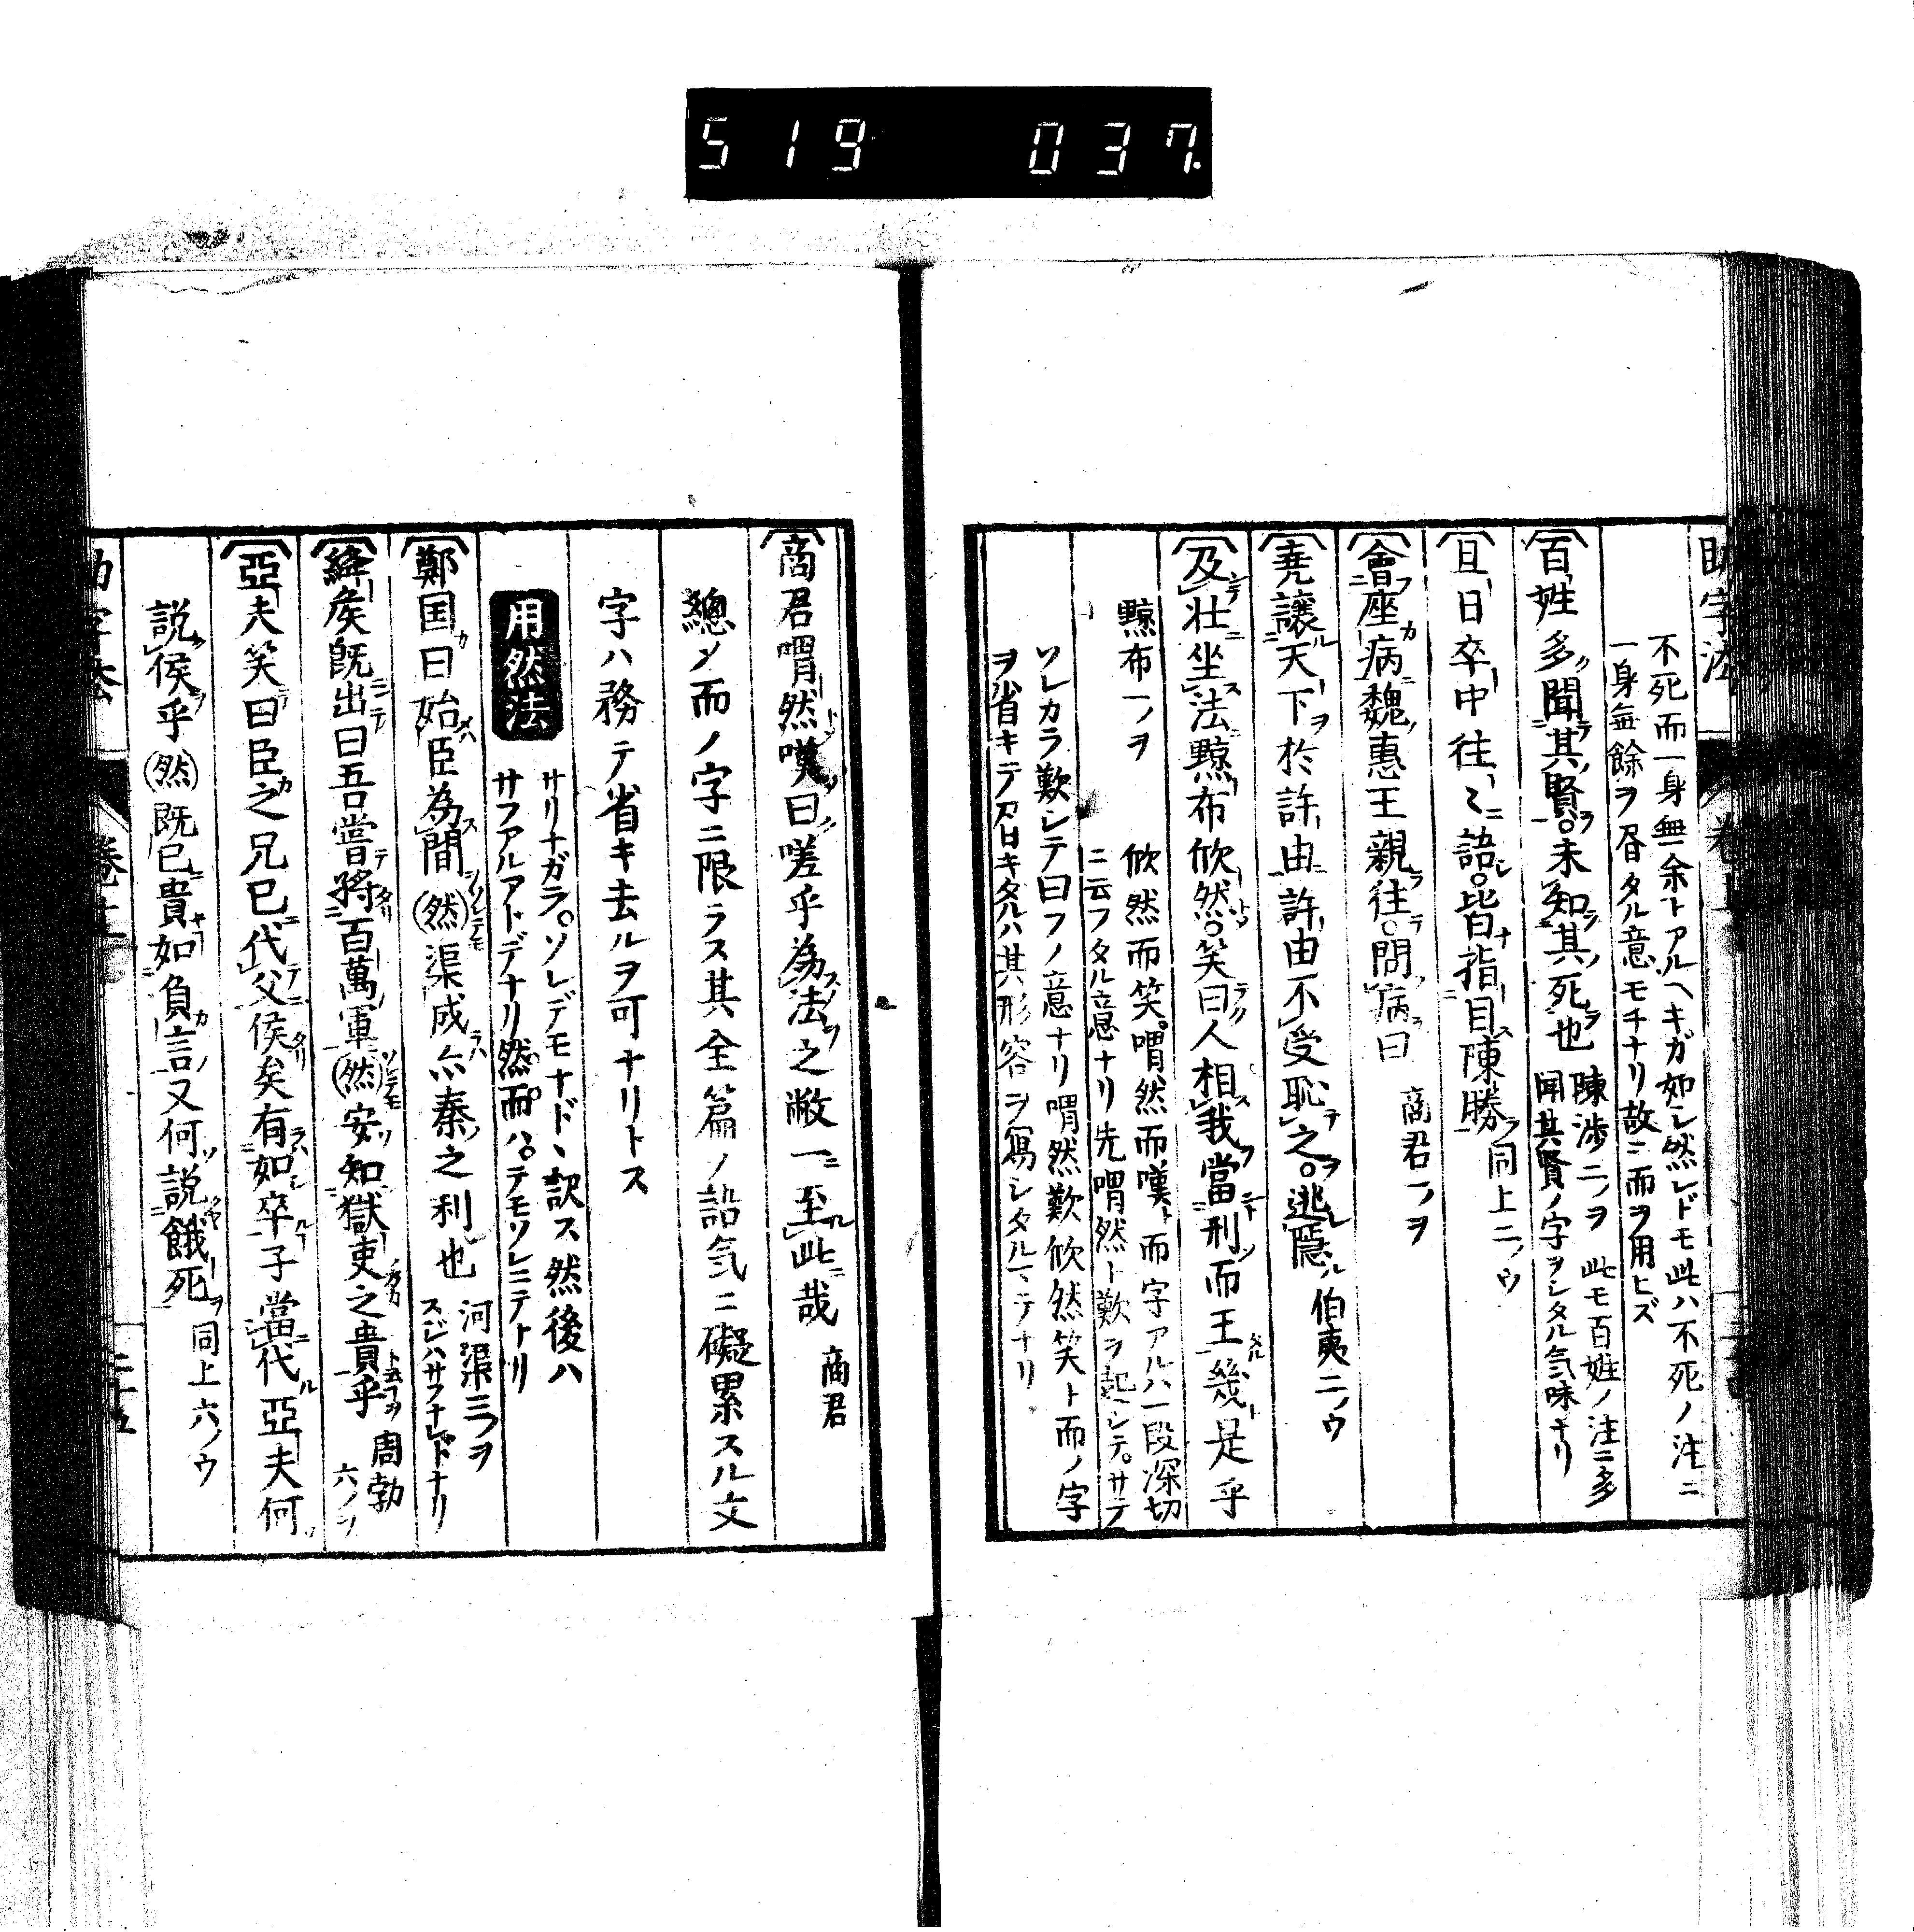 519 037.
助字法 卷上
不死而一身無余トアルヘキガ如シ然レドモ此ハ不死ノ注ニ
一身無餘ヲ居タル意モチナリ故ニ而ヲ用ヒズ
百姓多聞其賢。未知其死也 陳渉二ノヲ 此モ百姓ノ注ニ多
聞其賢ノ字ヲシタル気味ナリ
旦日卒中往〻語。皆指目陳勝 同上二ノウ
會座病魏惠王親往。問病曰 商君一ノヲ
堯讓天下於許由許由不受恥之。逃隱 伯夷二ノウ
及壮坐法黥布欣然。笑曰人相我當刑而王幾是乎
黥布一ノヲ 欣然而笑。喟然而嘆ト而字アルハ一段深切
ニ云フタル意ナリ先喟然ト歎ヲ起シテ。サテ
ソレカラ歎レテ曰フノ意ナリ喟然歎欣然笑ト而ノ字
ヲ省キテ居キタルハ其形容ヲ寫シタルマテナリ
商君喟然嘆曰嗟乎為法之敝一至此哉 商君
總〆而ノ字ニ限ラス其全篇ノ語気ニ礙累スル文
字ハ務テ省キ去ルヲ可ナリトス
用然法 サリナガラ。ソレデモナド、訳ス然後ハ
サフアルアトデナリ然而ハ。テモソレニテトリ
鄭国曰始臣為間然渠成亦秦之利也 河渠三ノヲ
スジハサフナレドナリ
絳矦既出曰吾嘗將百萬軍然安知獄吏之貴乎 周勃
六ノヲ
亞夫笑曰臣之兄已代父侯矣有如卒子當代亞夫何
説侯乎然既已貴如負言又何説餓死 同上六ノウ
助字法 卷上 二十五